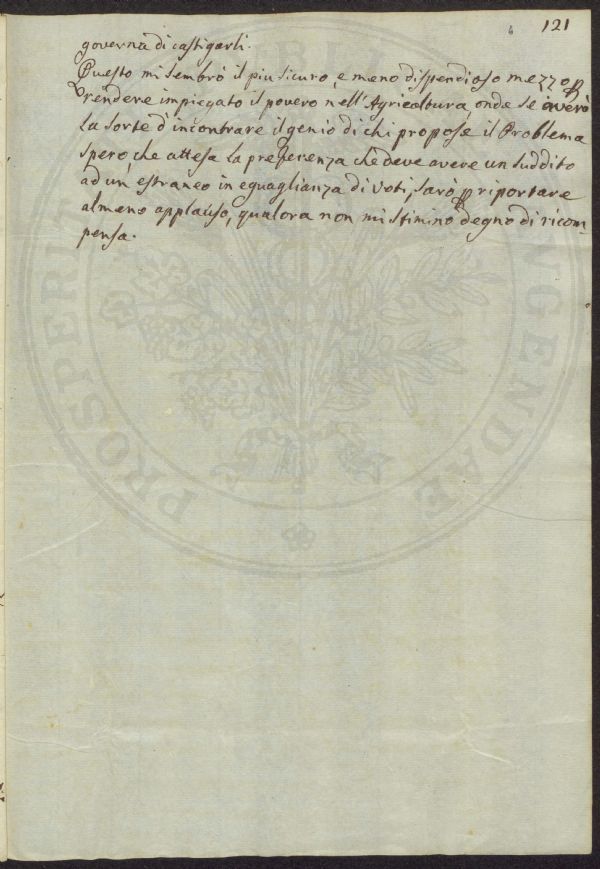 6 121
governa di castigarli.
Questo mi sembrò il piu sicuro, e meno dispendioso mezzo p
rendere impiegato il povero nell'Agricoltura, onde se averò
la sorte d'incontrare il genio di chi propose il Problema
spero, che attesa la preferenza che deve avere un suddito
ad un' estraneo in eguaglianza di voti, sarò p riportare
almeno applauso, qualora non mi stimino degno di ricom-
pensa.
PROSPERI
NGENDAE